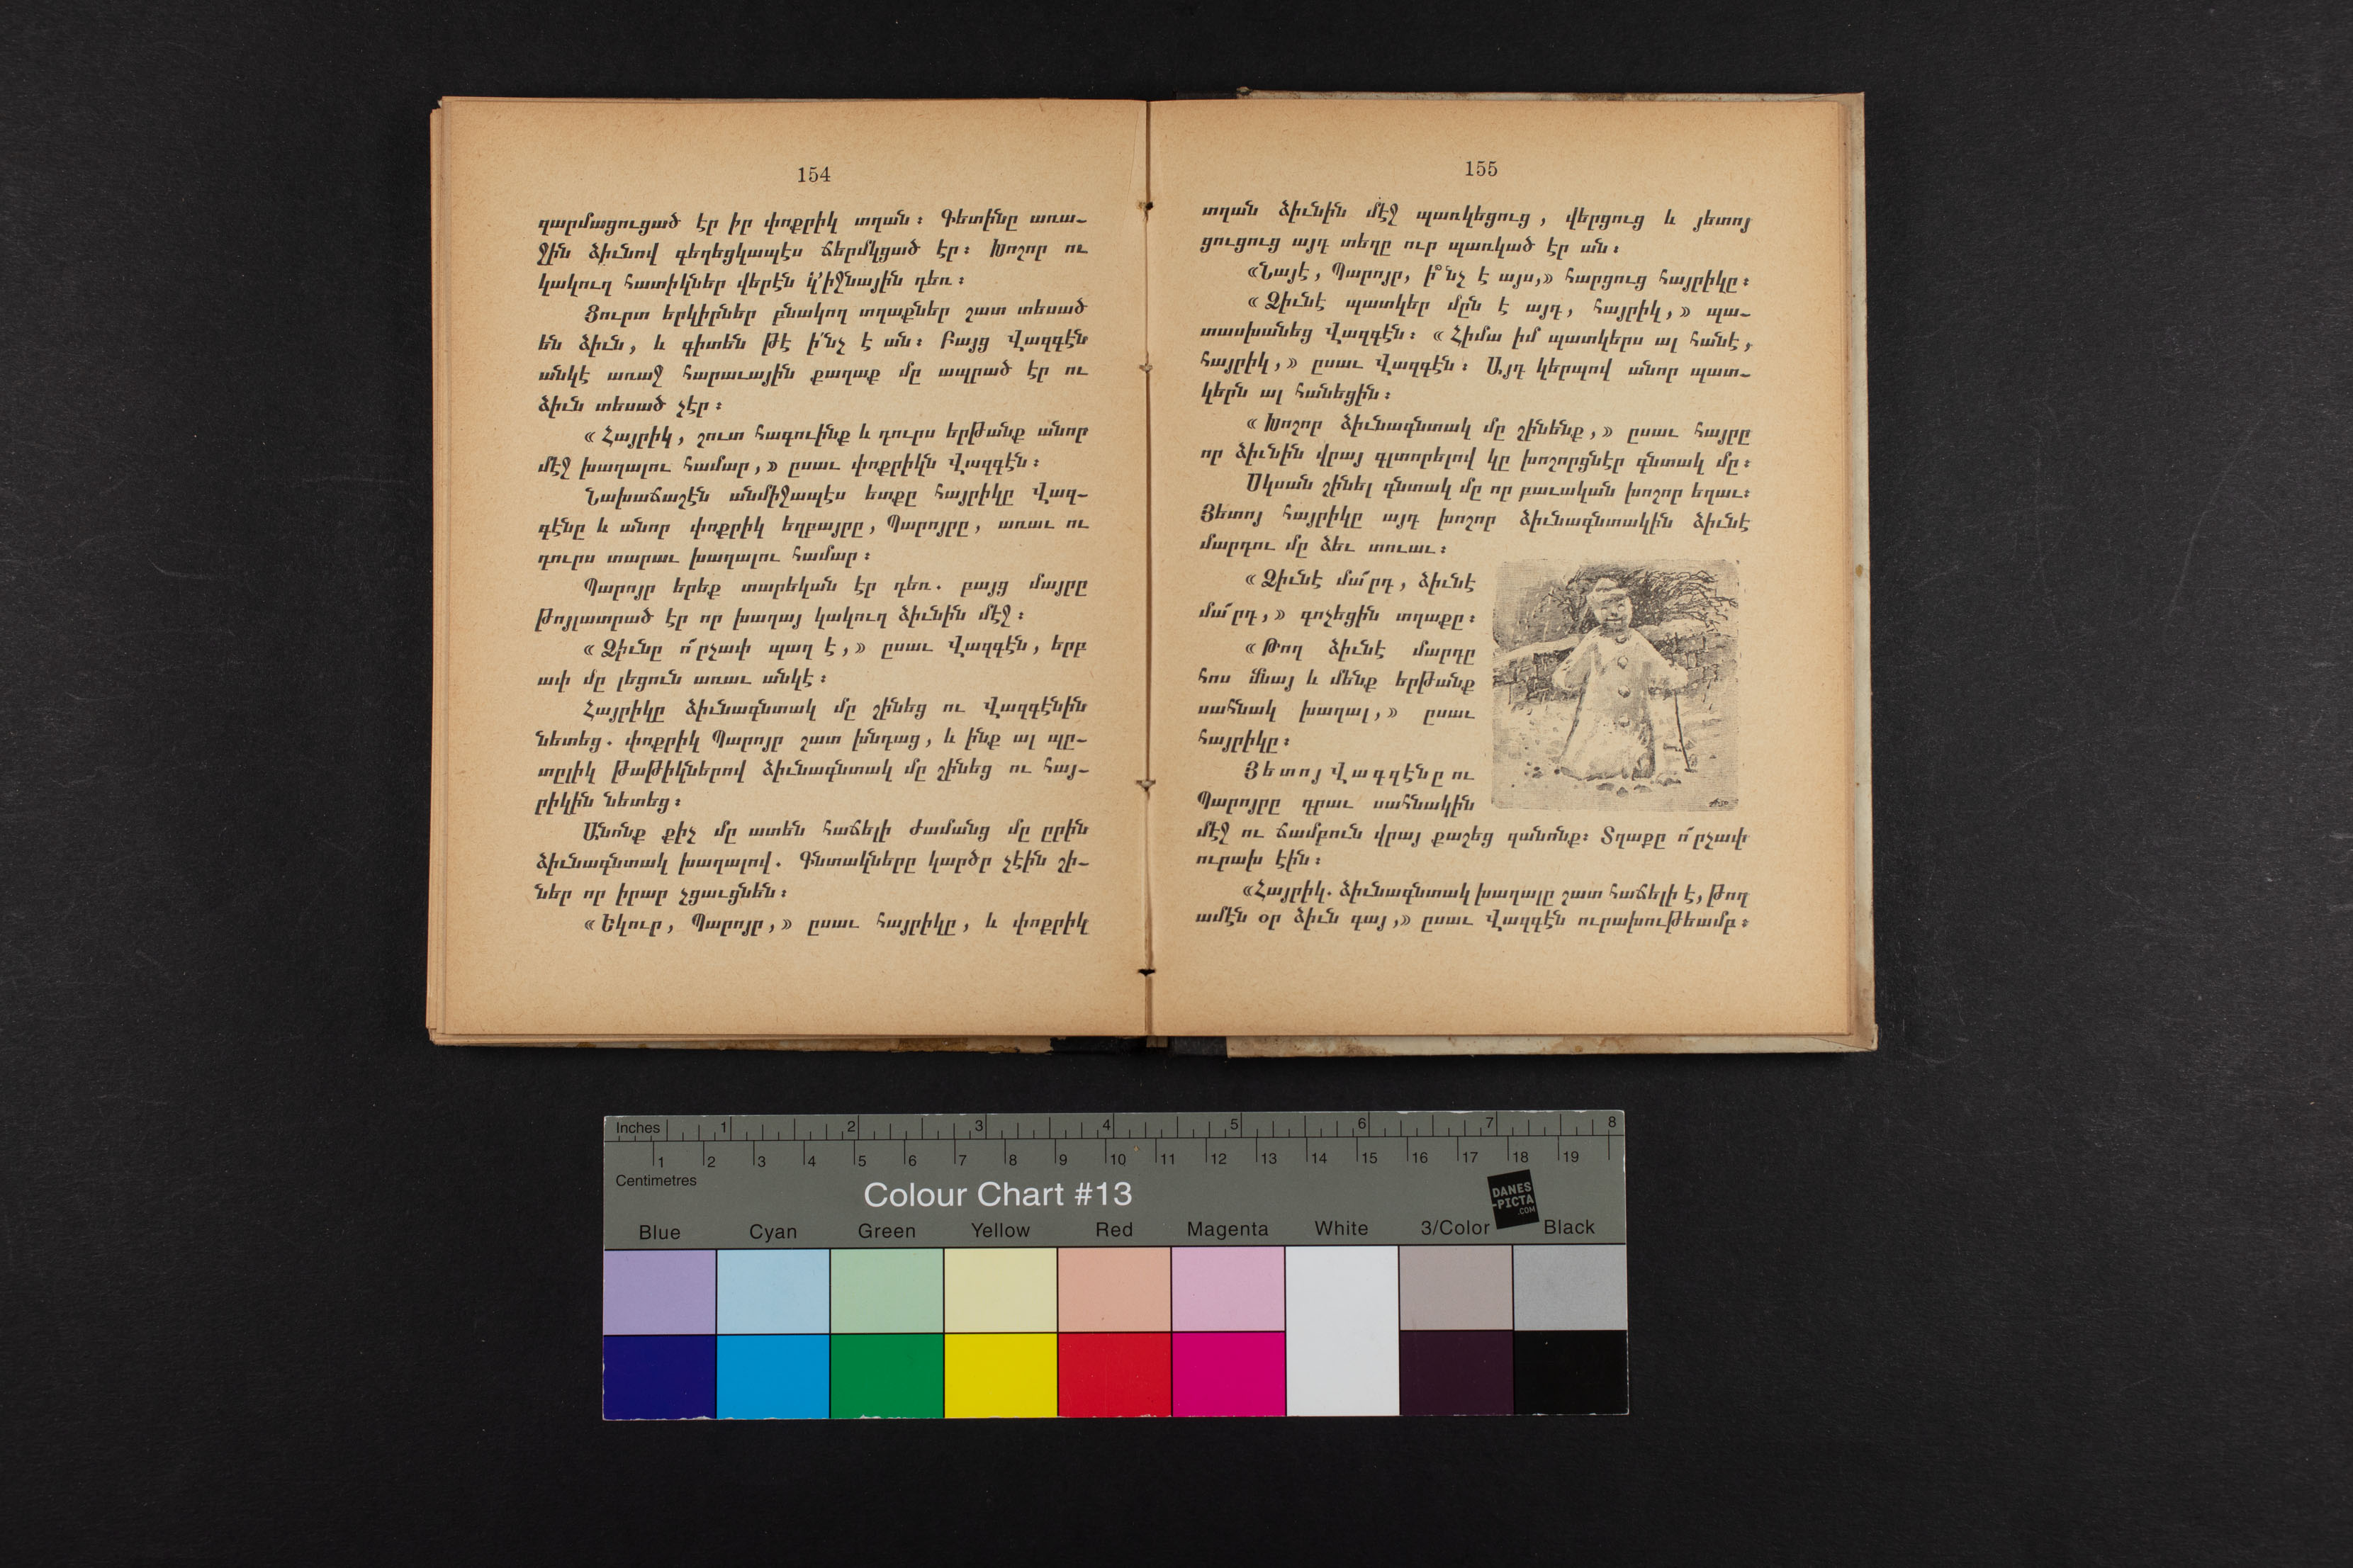 154
զարմացուցած էր իր փոքրիկ տղան։ Գետինը առա-
ջին ձիւնով գեղեցկապէս ճերմկցած էր։ Խոշոր ու
կակուղ հատիկներ վերէն կ՚իջնային դեռ։
Ցուրտ երկիրներ բնակող տղաքներ շատ տեսած
են ձիւն, և գիտեն թէ ի՛նչ է ան։ Բայց Վազգէն
անկէ առաջ հարաւային քաղաք մը ապրած էր ու
ձիւն տեսած չէր։
«Հայրիկ, շուտ հագուինք և դուրս երթանք անոր
մէջ խաղալու համար,» ըսաւ փոքրիկն Վազգէն։
Նախաճաշէն անմիջապէս ետքը հայրիկը Վազ-
գէնը և անոր փոքրիկ եղբայրը, Պարոյրը, առաւ ու
դուրս տարաւ խաղալու համար։
Պարոյր երեք տարեկան էր դեռ. բայց մայրը
թոյլատրած էր որ խաղայ կակուղ ձիւնին մէջ։
«Ձիւնը ո՜րչափ պաղ է,» ըսաւ Վազգէն, երբ
ափ մը լեցուն առաւ անկէ։
Հայրիկը ձիւնագնտակ մը շինեց ու Վազգէնին
նետեց. փոքրիկ Պարոյր շատ խնդաց, և ինք ալ պը-
տըլիկ թաթիկներով ձիւնագնտակ մը շինեց ու հայ-
րիկին նետեց։
Անոնք քիչ մը ատեն հաճելի ժամանց մը ըրին
ձիւնագնտակ խաղալով. Գնտակները կարծր չէին շի-
ներ որ իրար չցաւցնեն։
«Եկուր, Պարոյր,» ըսաւ հայրիկը, և փոքրիկ
155
տղան ձիւնին մէջ պառկեցուց, վերցուց և յետոյ
ցուցուց այդ տեղը ուր պառկած էր ան։
«Նայէ, Պարոյր, ի՞նչ է այս,» հարցուց հայրիկը։
«Ձիւնէ պատկեր մըն է այդ, հայրիկ,» պա-
տասխանեց Վազգէն։ «Հիմա իմ պատկերս ալ հանէ,
հայրիկ,» ըսաւ Վազգէն։ Այդ կերպով անոր պատ-
կերն ալ հանեցին։
«Խոշոր ձիւնագնտակ մը շինենք,» ըսաւ հայրը
որ ձիւնին վրայ գլտորելով կը խոշորցնէր գնտակ մը։
Սկսան շինել գնտակ մը որ բաւական խոշոր եղաւ։
Յետոյ հայրիկը այդ խոշոր ձիւնագնտակին ձիւնէ
մարդու մը ձեւ տուաւ։
«Ձիւնէ մա՜րդ, ձիւնէ
մա՜րդ,» գոչեցին տղաքը։
«Թող ձիւնէ մարդը
հոս մնայ և մենք երթանք
սահնակ խաղալ,» ըսաւ
հայրիկը։
Յետոյ Վազգէնը ու
Պարոյրը դրաւ սահնակին
մէջ ու ճամբուն վրայ քաշեց զանոնք։ Տղաքը ո՜րչափ
ուրախ էին։
«Հայրիկ. ձիւնագնտակ խաղալը շատ հաճելի է, թող
ամէն օր ձիւն գայ,» ըսաւ Վազգէն ուրախութեամբ։
Inches 1 2 3 4 5 6 7 8
1 2 3 4 5 6 7 8 9 10 11 12 13 14 15 16 17 18 19
Centimetres
Colour Chart #13
DANES
-PICTA
.COM
Blue Cyan Green Yellow Red Magenta White 3/Color Black